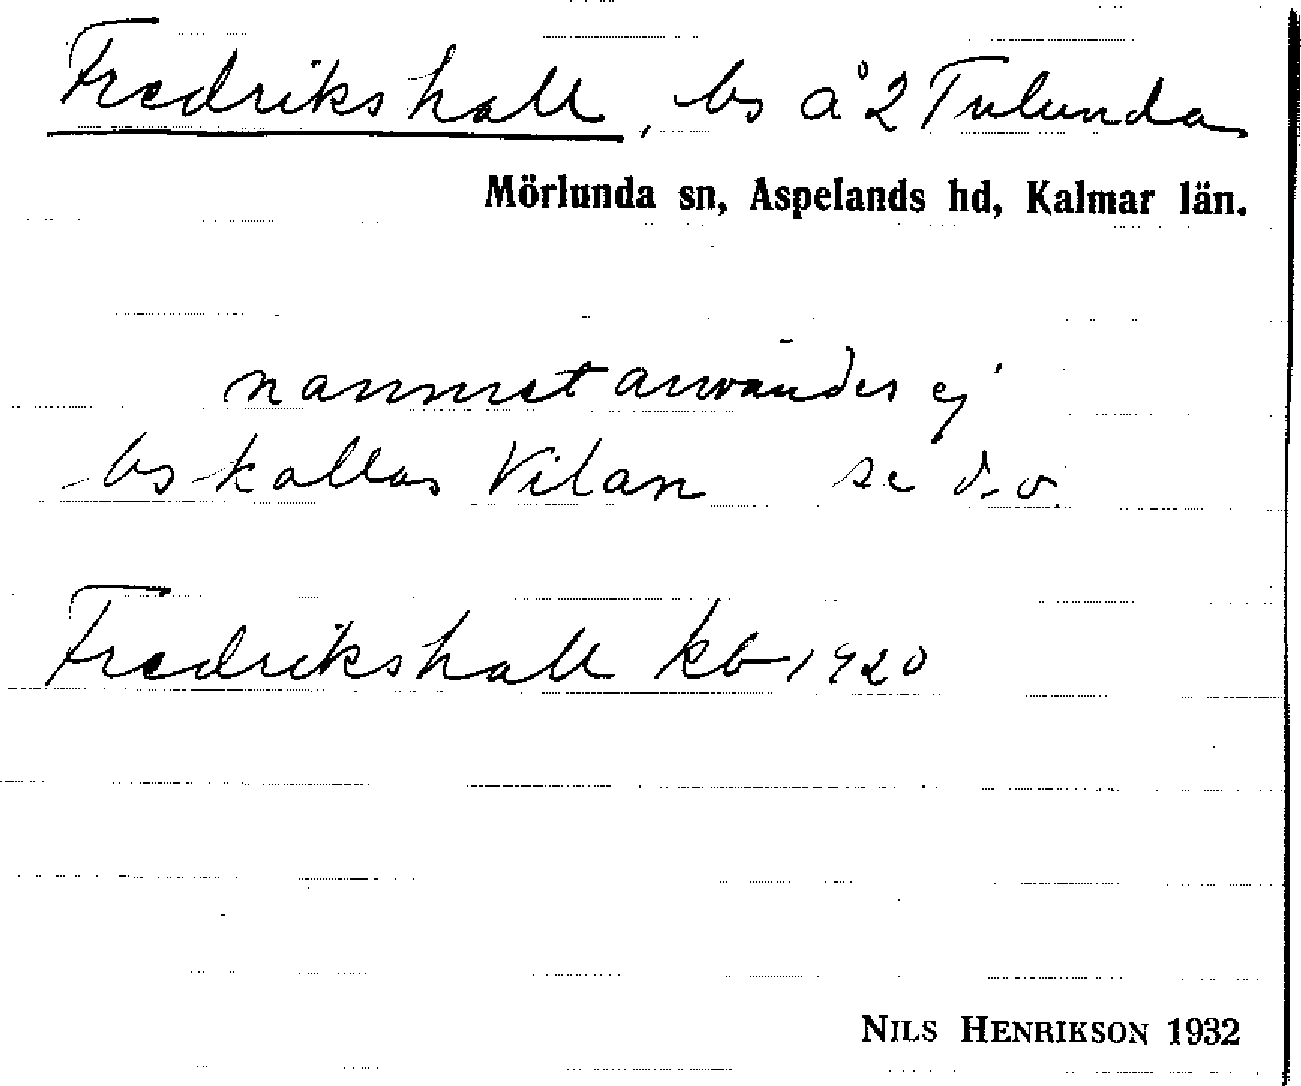 Fredrikshall, bs å 2 Tulunda
Mörlunda sn, Aspelands hd, Kalmar län.
namnet användes ej
bs kallas Vilan se d. o.
Fredrikshall kb 1920
NILS HENRIKSON 1932